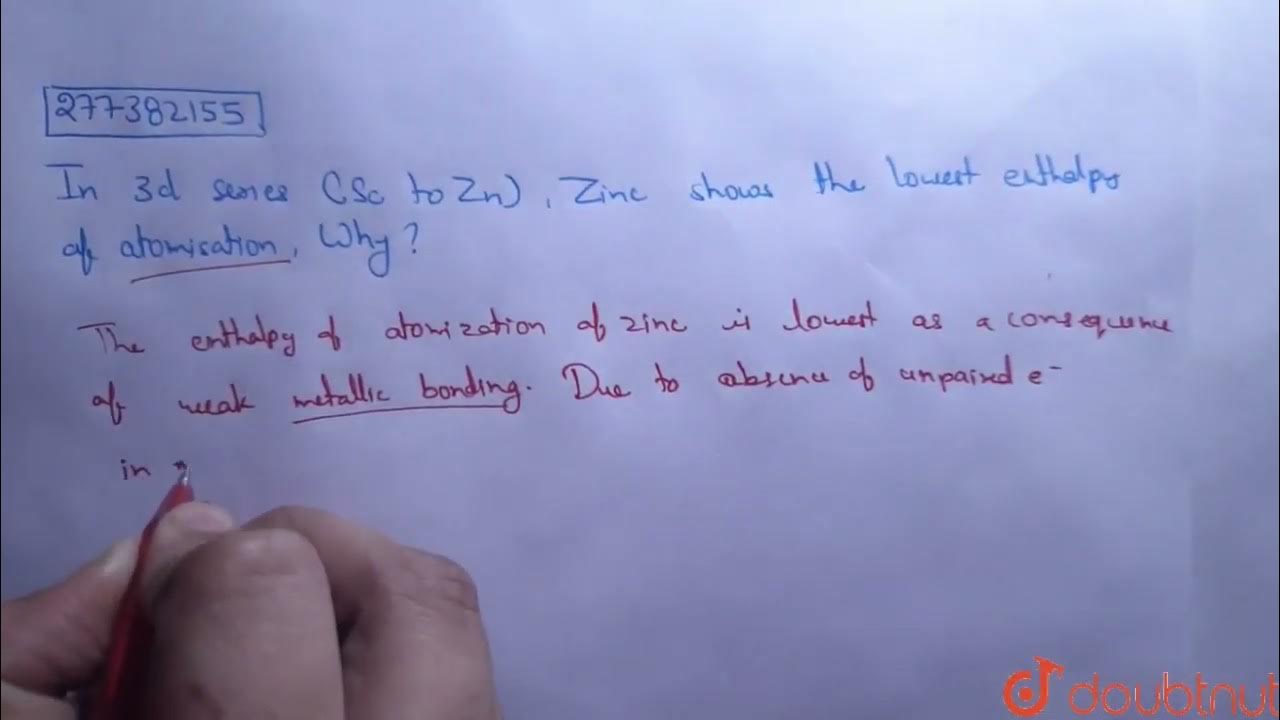 277382155
In 3d series (Sc to Zn), Zinc shows the lowest enthalpy
of atomisation, Why?
The enthalpy of atomization of zinc is lowest as a consequence
of weak metallic bonding. Due to absence of unpaired e⁻
in
doubtnut